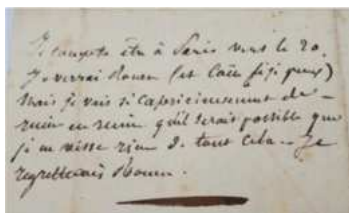 Je compte être à Paris vers le 20.
Je verrai Rouen (et Caën si je peux)
mais je vais si capricieusement de
ruine en ruine qu'il serait possible que
je ne visse rien de tout cela - Je
regretterais Rouen.